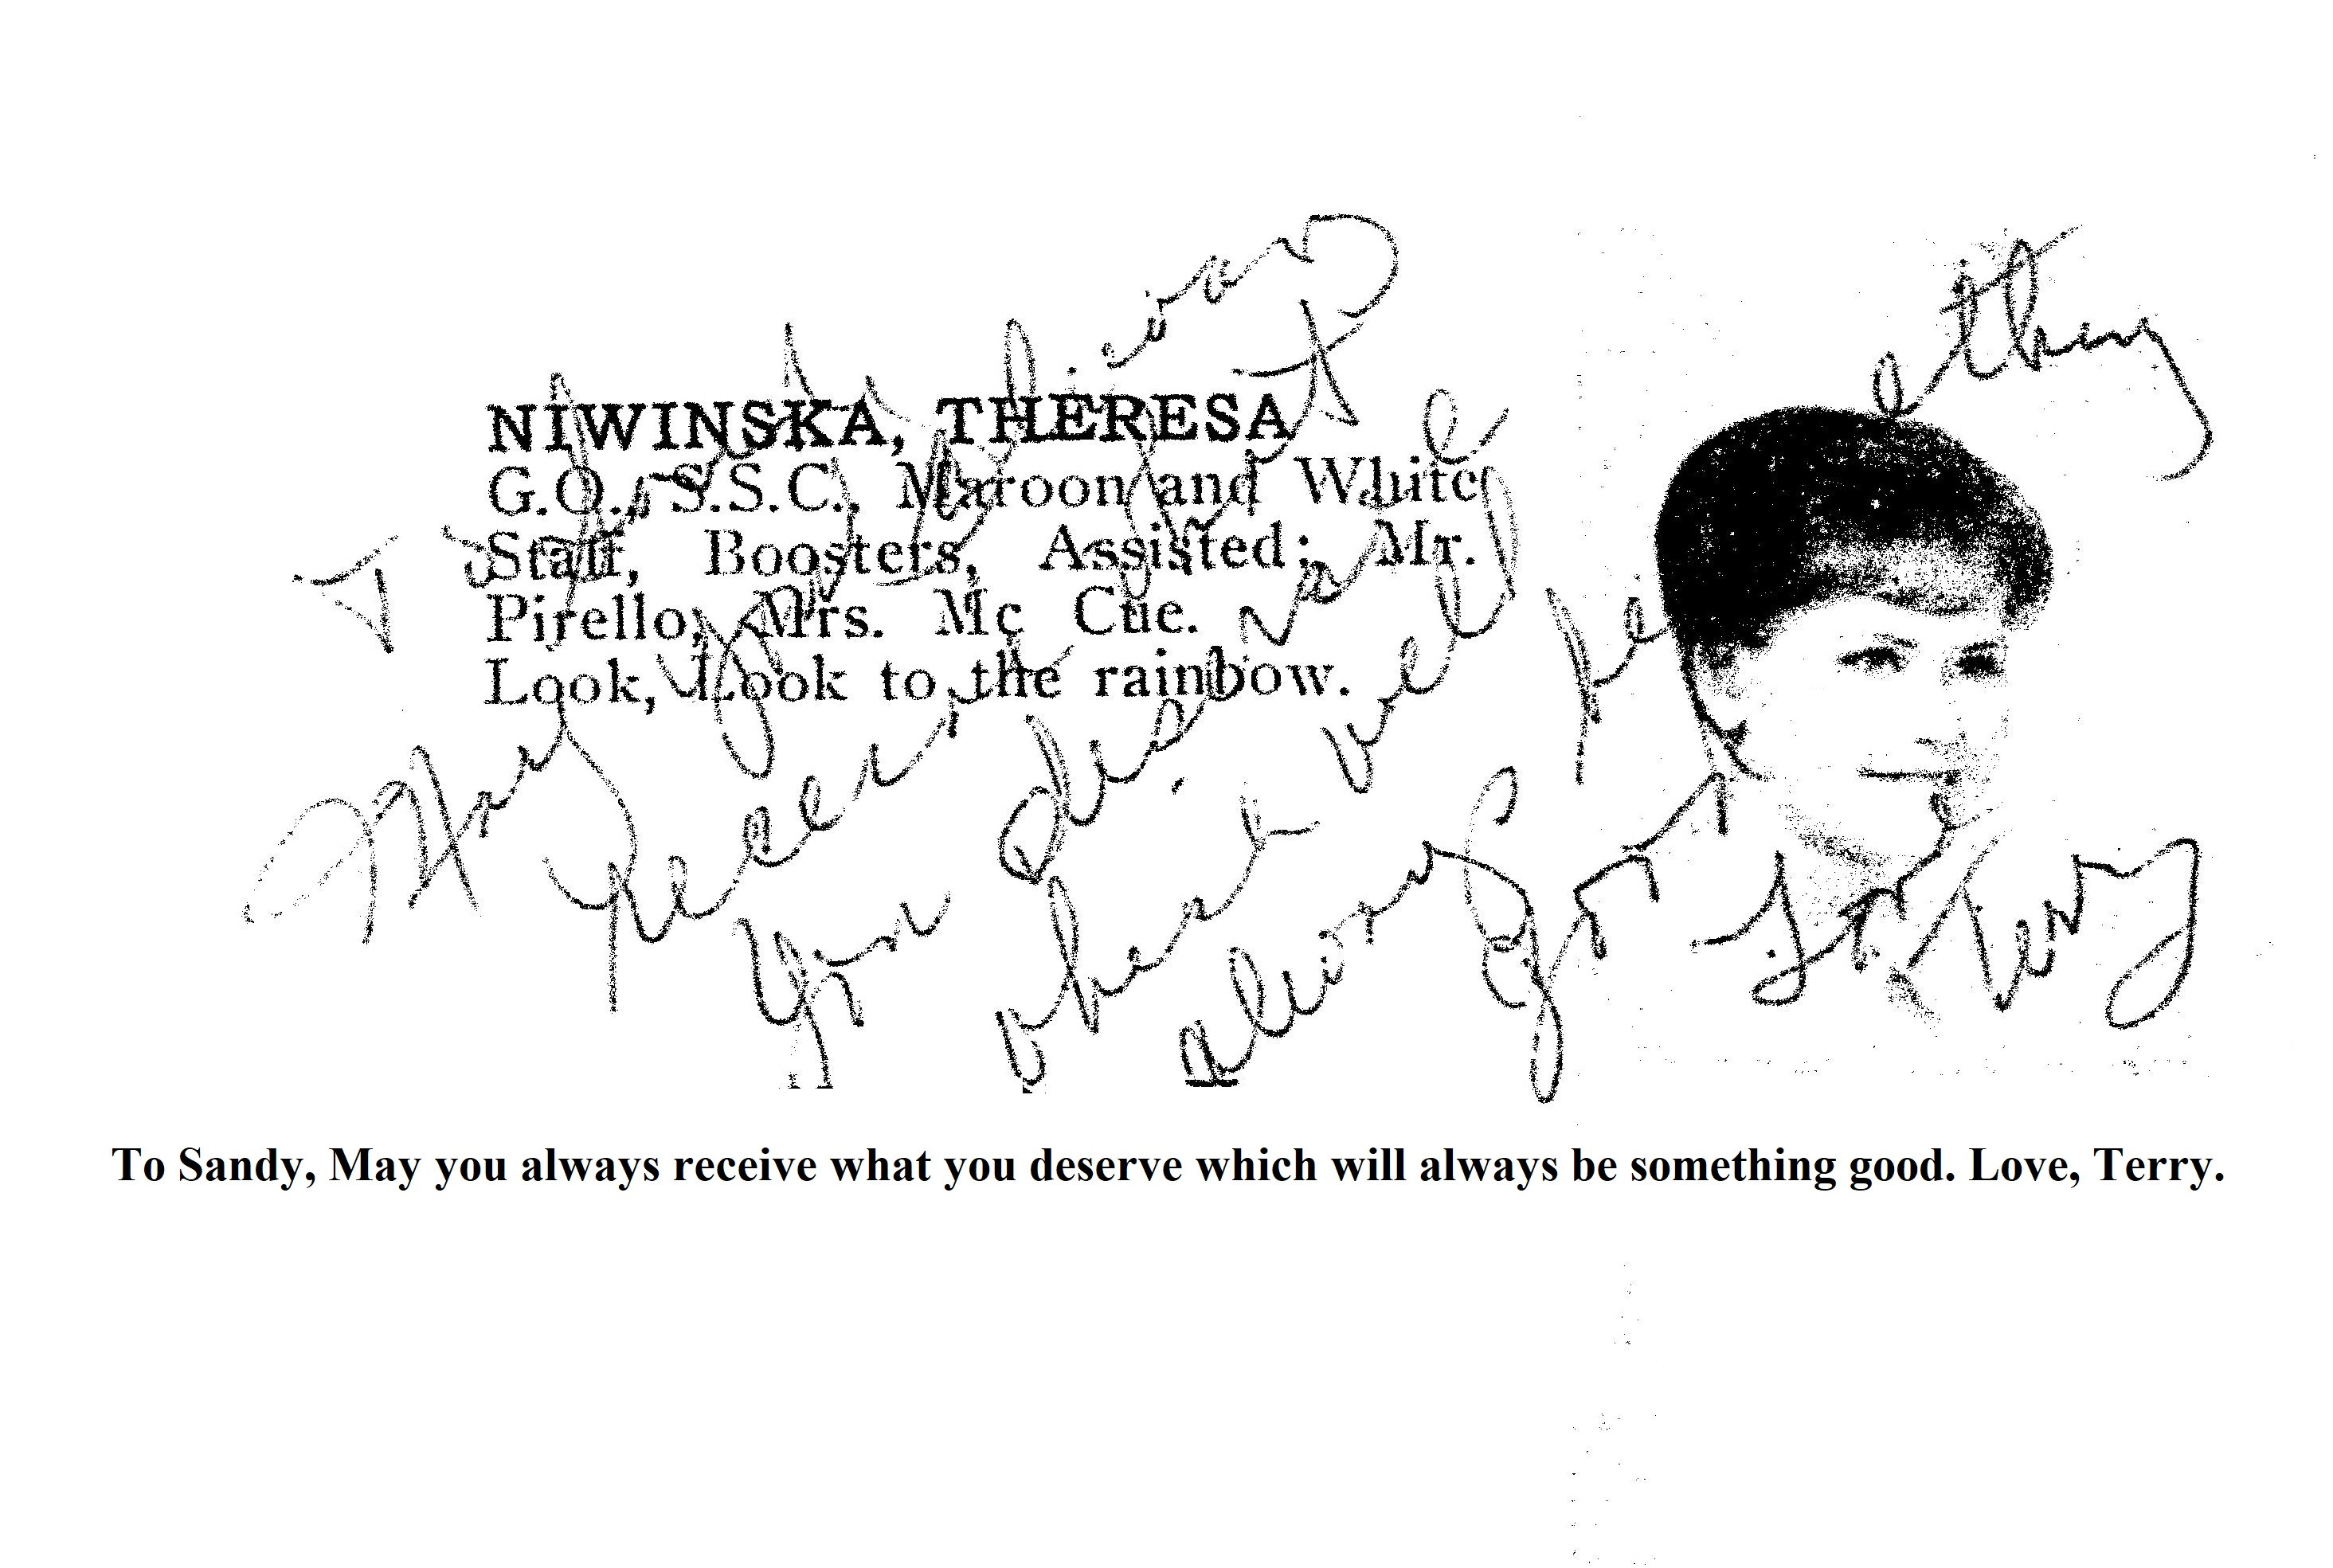 NIWINSKA, THERESA
G.O., S.S.C., Maroon and White
Staff, Boosters, Assisted: Mr.
Pirello, Mrs. Mc Cue.
Look, Look to the rainbow.
To Sandy
May you always
receive
you deserve
will be
always good
Love Terry
To Sandy, May you always receive what you deserve which will always be something good. Love, Terry.